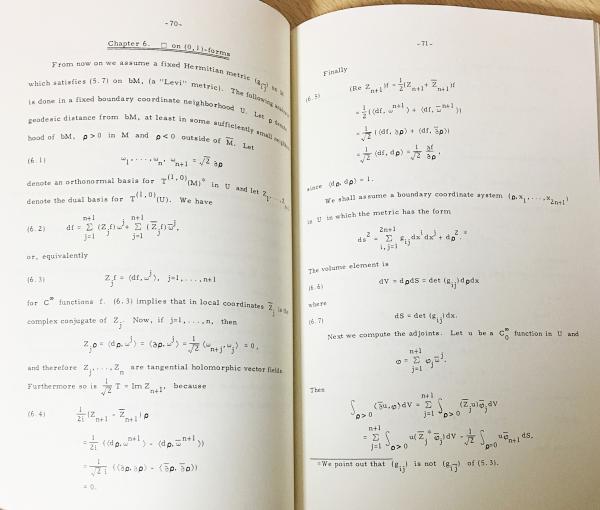 -70-
Chapter 6. □ on (0,1)-forms
From now on we assume a fixed Hermitian metric (g_{ij̄}) on M
which satisfies (5.7) on bM, (a "Levi" metric). The following
is done in a fixed boundary coordinate neighborhood U. Let ρ denote
geodesic distance from bM, at least in some sufficiently small neighbor-
hood of bM, ρ > 0 in M and ρ < 0 outside of M̄. Let
(6.1) ω_1, ..., ω_n, ω_{n+1} = √2 ∂ρ
denote an orthonormal basis for T^{(1,0)}(M)* in U and let Z_1,
denote the dual basis for T^{(1,0)}(U). We have
(6.2) df = Σ_{j=1}^{n+1} (Z_j f) ω^j + Σ_{j=1}^{n+1} (Z̄_j f) ω̄^j,
or, equivalently
(6.3) Z_j f = ⟨df, ω^j⟩, j=1,...,n+1
for C^∞ functions f. (6.3) implies that in local coordinates Z̄_j is the
complex conjugate of Z_j. Now, if j=1,...,n, then
Z_j ρ = ⟨dρ, ω^j⟩ = ⟨∂ρ, ω^j⟩ = 1/√2 ⟨ω_{n+1}, ω_j⟩ = 0,
and therefore Z_1, ..., Z_n are tangential holomorphic vector fields.
Furthermore so is 1/√2 T = Im Z_{n+1}, because
(6.4) 1/2i (Z_{n+1} - Z̄_{n+1}) ρ
= 1/2i (⟨dρ, ω^{n+1}⟩ - ⟨dρ, ω̄^{n+1}⟩)
= 1/(√2 i) (⟨∂ρ, ∂ρ⟩ - ⟨∂̄ρ, ∂̄ρ⟩)
= 0.
-71-
Finally
(6.5) (Re Z_{n+1})f = 1/2 (Z_{n+1} + Z̄_{n+1})f
= 1/2 (⟨df, ω^{n+1}⟩ + ⟨df, ω̄^{n+1}⟩)
= 1/√2 (⟨df, ∂ρ⟩ + ⟨df, ∂̄ρ⟩)
= 1/√2 ⟨df, dρ⟩ = 1/√2 ∂f/∂ρ,
since ⟨dρ, dρ⟩ = 1.
We shall assume a boundary coordinate system (ρ, x_1, ..., x_{2n+1})
in U in which the metric has the form
ds² = Σ_{i,j=1}^{2n+1} g_{ij} dx^i dx^j + dρ².*
The volume element is
(6.6) dV = dρdS = det (g_{ij}) dρdx
where
(6.7) dS = det (g_{ij}) dx.
Next we compute the adjoints. Let u be a C_0^∞ function in U and
φ = Σ_{j=1}^{n+1} φ_j ω̄^j.
Then
∫_{ρ>0} ⟨∂̄u, φ⟩ dV = Σ_{j=1}^{n+1} ∫_{ρ>0} (Z̄_j u) φ̄_j dV
= Σ_{j=1}^{n+1} ∫_{ρ>0} u(Z̄_j* φ̄_j) dV - 1/√2 ∫_{ρ=0} u φ̄_{n+1} dS,
*We point out that (g_{ij}) is not (g_{ij̄}) of (5.3).